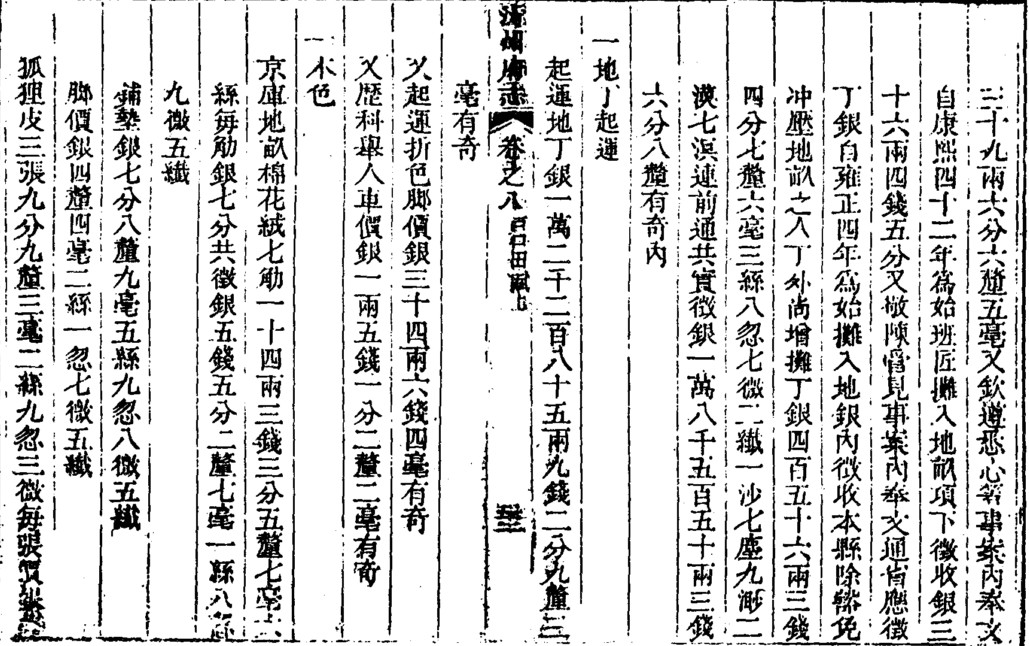 三十九兩六分六釐五毫又欽遵悉心籌事案內奉文
自康熙四十二年為始班匠攤入地畝項下徵收銀三
十六兩四錢五分又敬陳管見事案內奉文通省應徵
丁銀自雍正四年為始攤入地銀內徵收本縣除豁免
冲壓地畝之人丁外尚增攤丁銀四百五十六兩三錢
四分七釐六毫三絲八忽七微二纖一沙七塵九渺二
漠七溟連前通共實徵銀一萬八千五百五十兩三錢
六分八釐有奇內
一地丁起運
起運地丁銀一萬二千二百八十五兩九錢二分九釐三
州府志 卷之八 田賦上
毫有奇
又起運折色脚價銀三十四兩六錢四毫有奇
又歷科舉人車價銀一兩五錢一分二釐二毫有奇
一本色
京庫地畝棉花絨七觔一十四兩三錢三分五釐七毫六
絲每觔銀七分共徵銀五錢五分二釐七毫一絲八忽
九微五纖
鋪墊銀七分八釐九毫五絲九忽八微五纖
脚價銀四釐四毫二絲一忽七微五纖
狐狸皮三張九分九釐三毫二絲九忽三微每張價